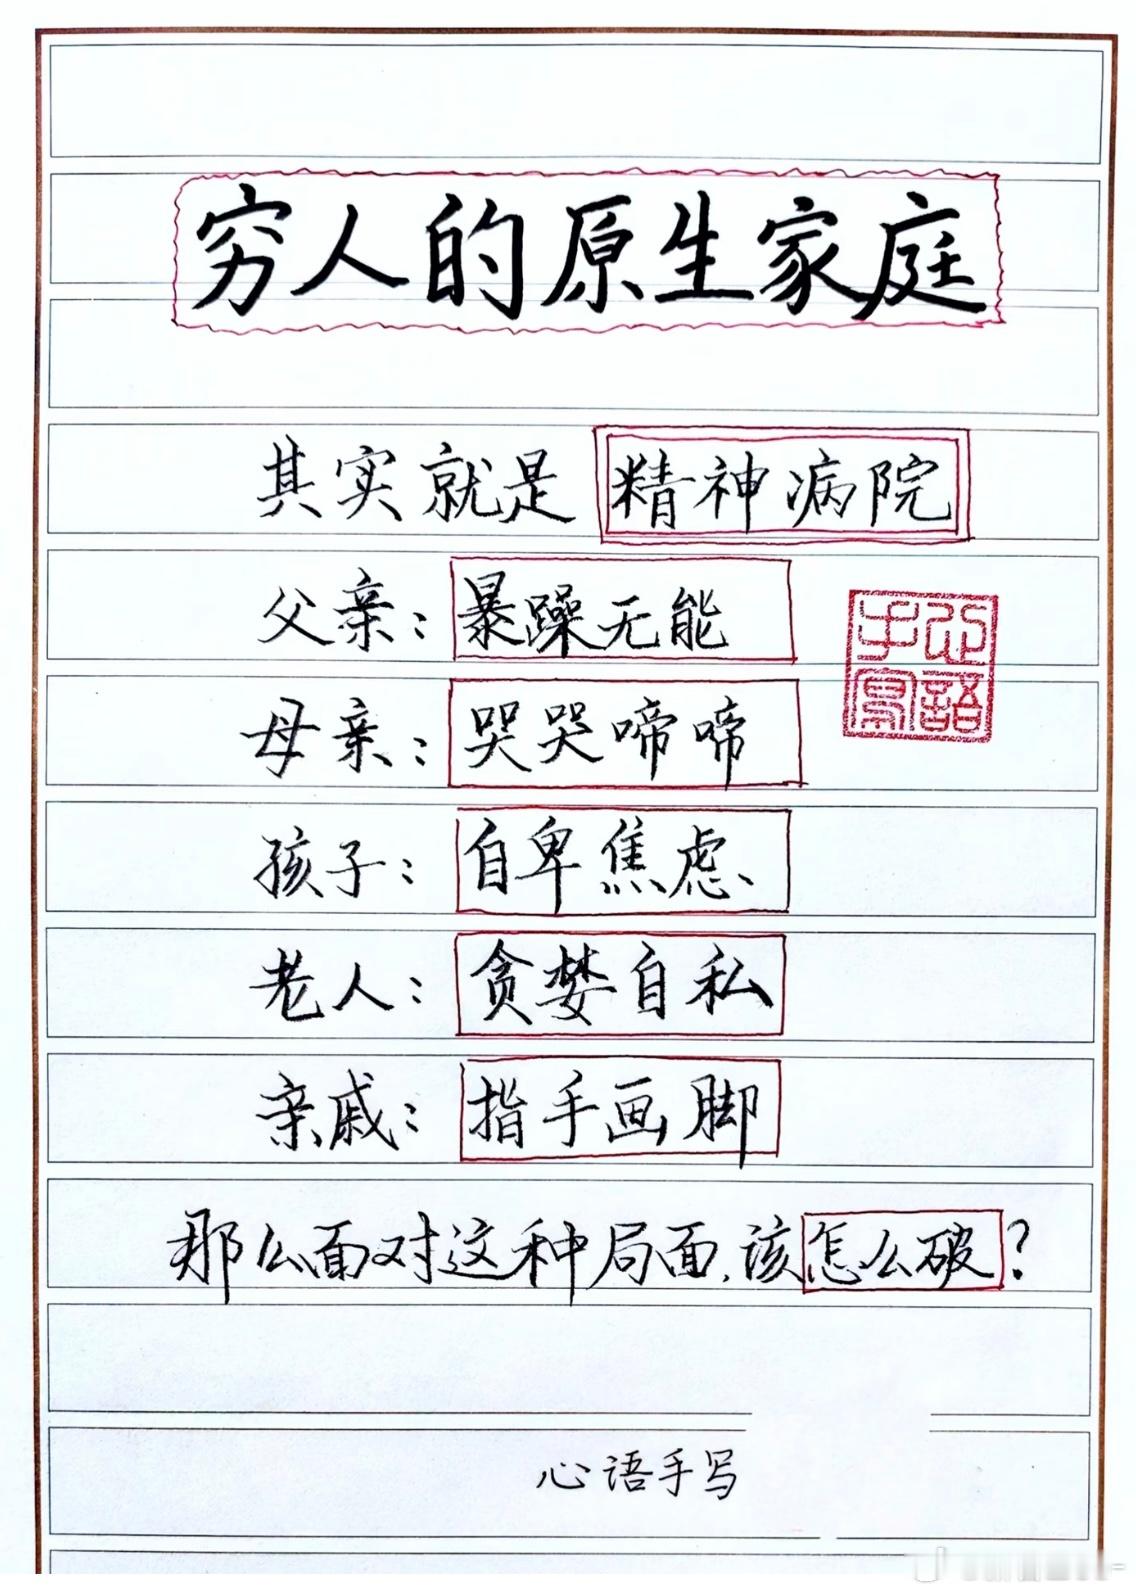 穷人的原生家庭
其实就是精神病院
父亲：暴躁无能
母亲：哭哭啼啼
心语手写
孩子：自卑焦虑
老人：贪婪自私
亲戚：指手画脚
那么面对这种局面，该怎么破？
心语手写